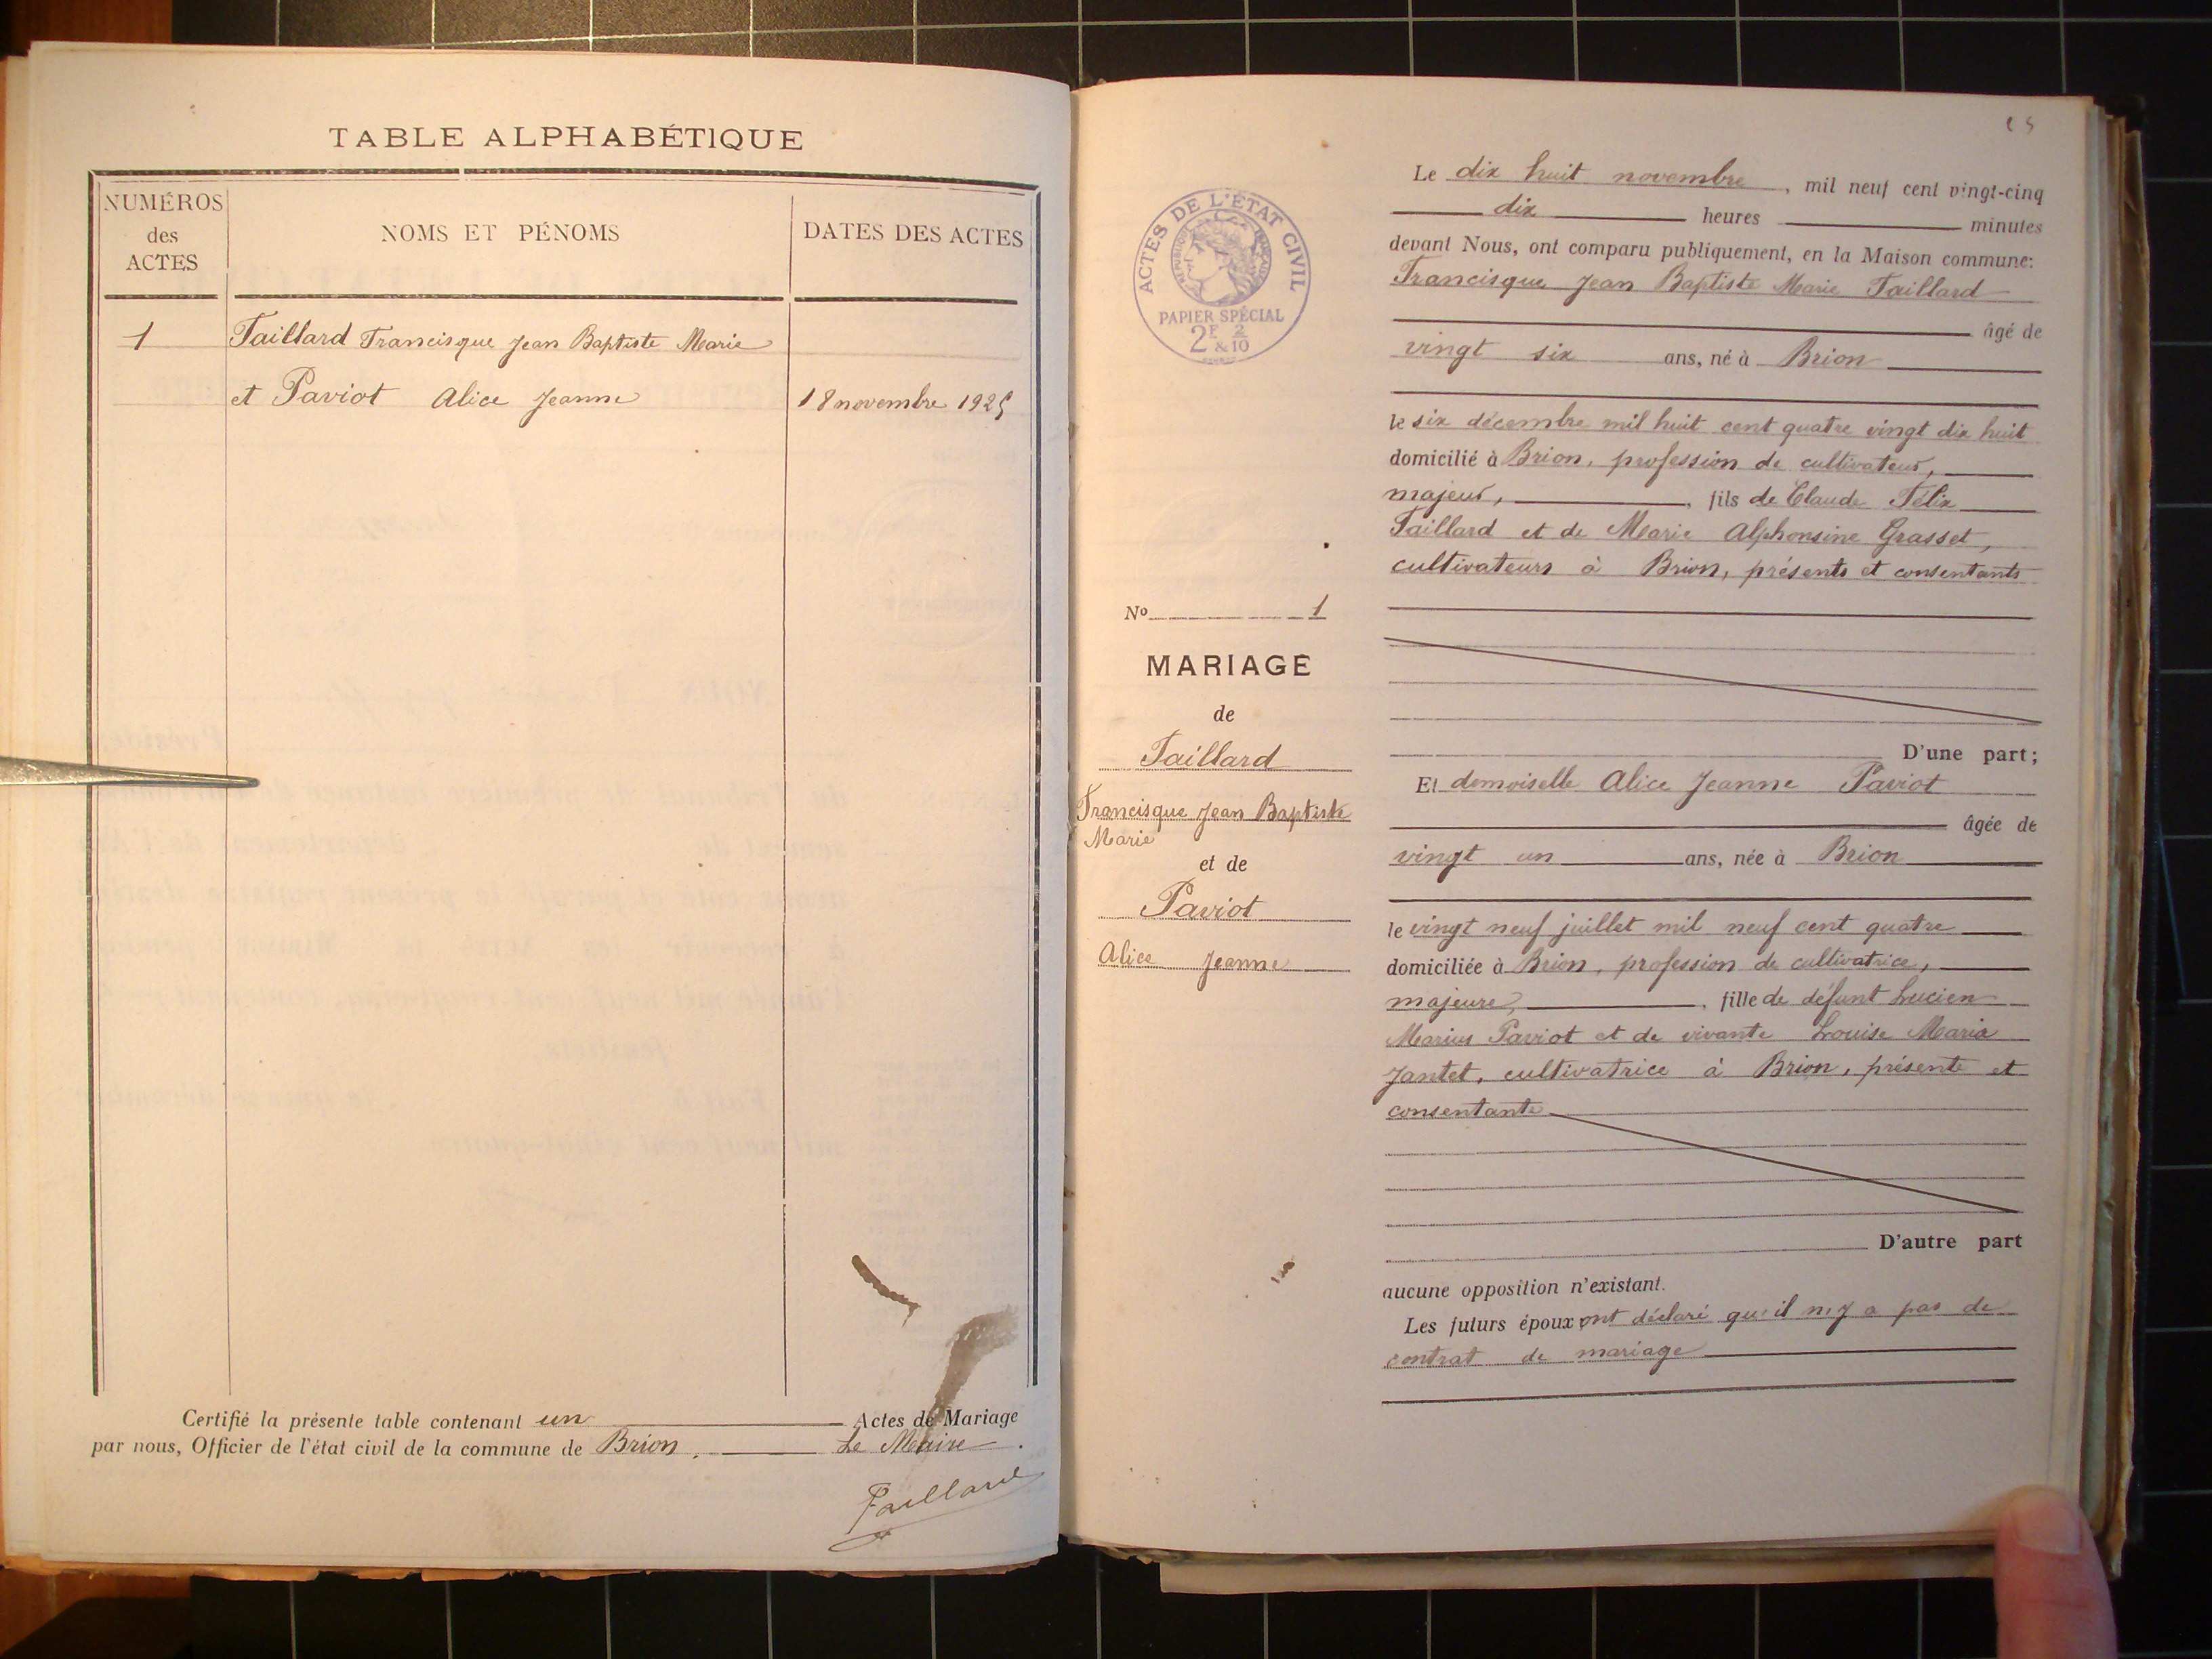 TABLE ALPHABÉTIQUE
NUMÉROS
des
ACTES
NOMS ET PÉNOMS
DATES DES ACTES
1
Taillard Francisque Jean Baptiste Marie
et Paviot Alice Jeanne
18 novembre 1925
Certifié la présente table contenant un Actes de Mariage
par nous, Officier de l'état civil de la commune de Brion, Le Maire.
Taillard
ACTES DE L'ÉTAT CIVIL
PAPIER SPÉCIAL
2F & 2/10
Nº 1
MARIAGE
de
Taillard
Francisque Jean Baptiste
Marie
et de
Paviot
Alice Jeanne
Le dix huit novembre, mil neuf cent vingt-cinq
dix heures minutes
devant Nous, ont comparu publiquement, en la Maison commune:
Francisque Jean Baptiste Marie Taillard
âgé de
vingt six ans, né à Brion
le six décembre mil huit cent quatre vingt dix huit
domicilié à Brion, profession de cultivateur,
majeur, , fils de Claude Félix
Taillard et de Marie Alphonsine Grasset,
cultivateurs à Brion, présents et consentants
D'une part;
Et demoiselle Alice Jeanne Paviot
âgée de
vingt un ans, née à Brion
le vingt neuf juillet mil neuf cent quatre
domiciliée à Brion, profession de cultivatrice,
majeure, , fille de défunt Lucien
Marius Paviot et de vivante Louise Maria
Jantet, cultivatrice à Brion, présente et
consentante
D'autre part
aucune opposition n'existant.
Les futurs époux ont déclaré qu'il n'y a pas de
contrat de mariage